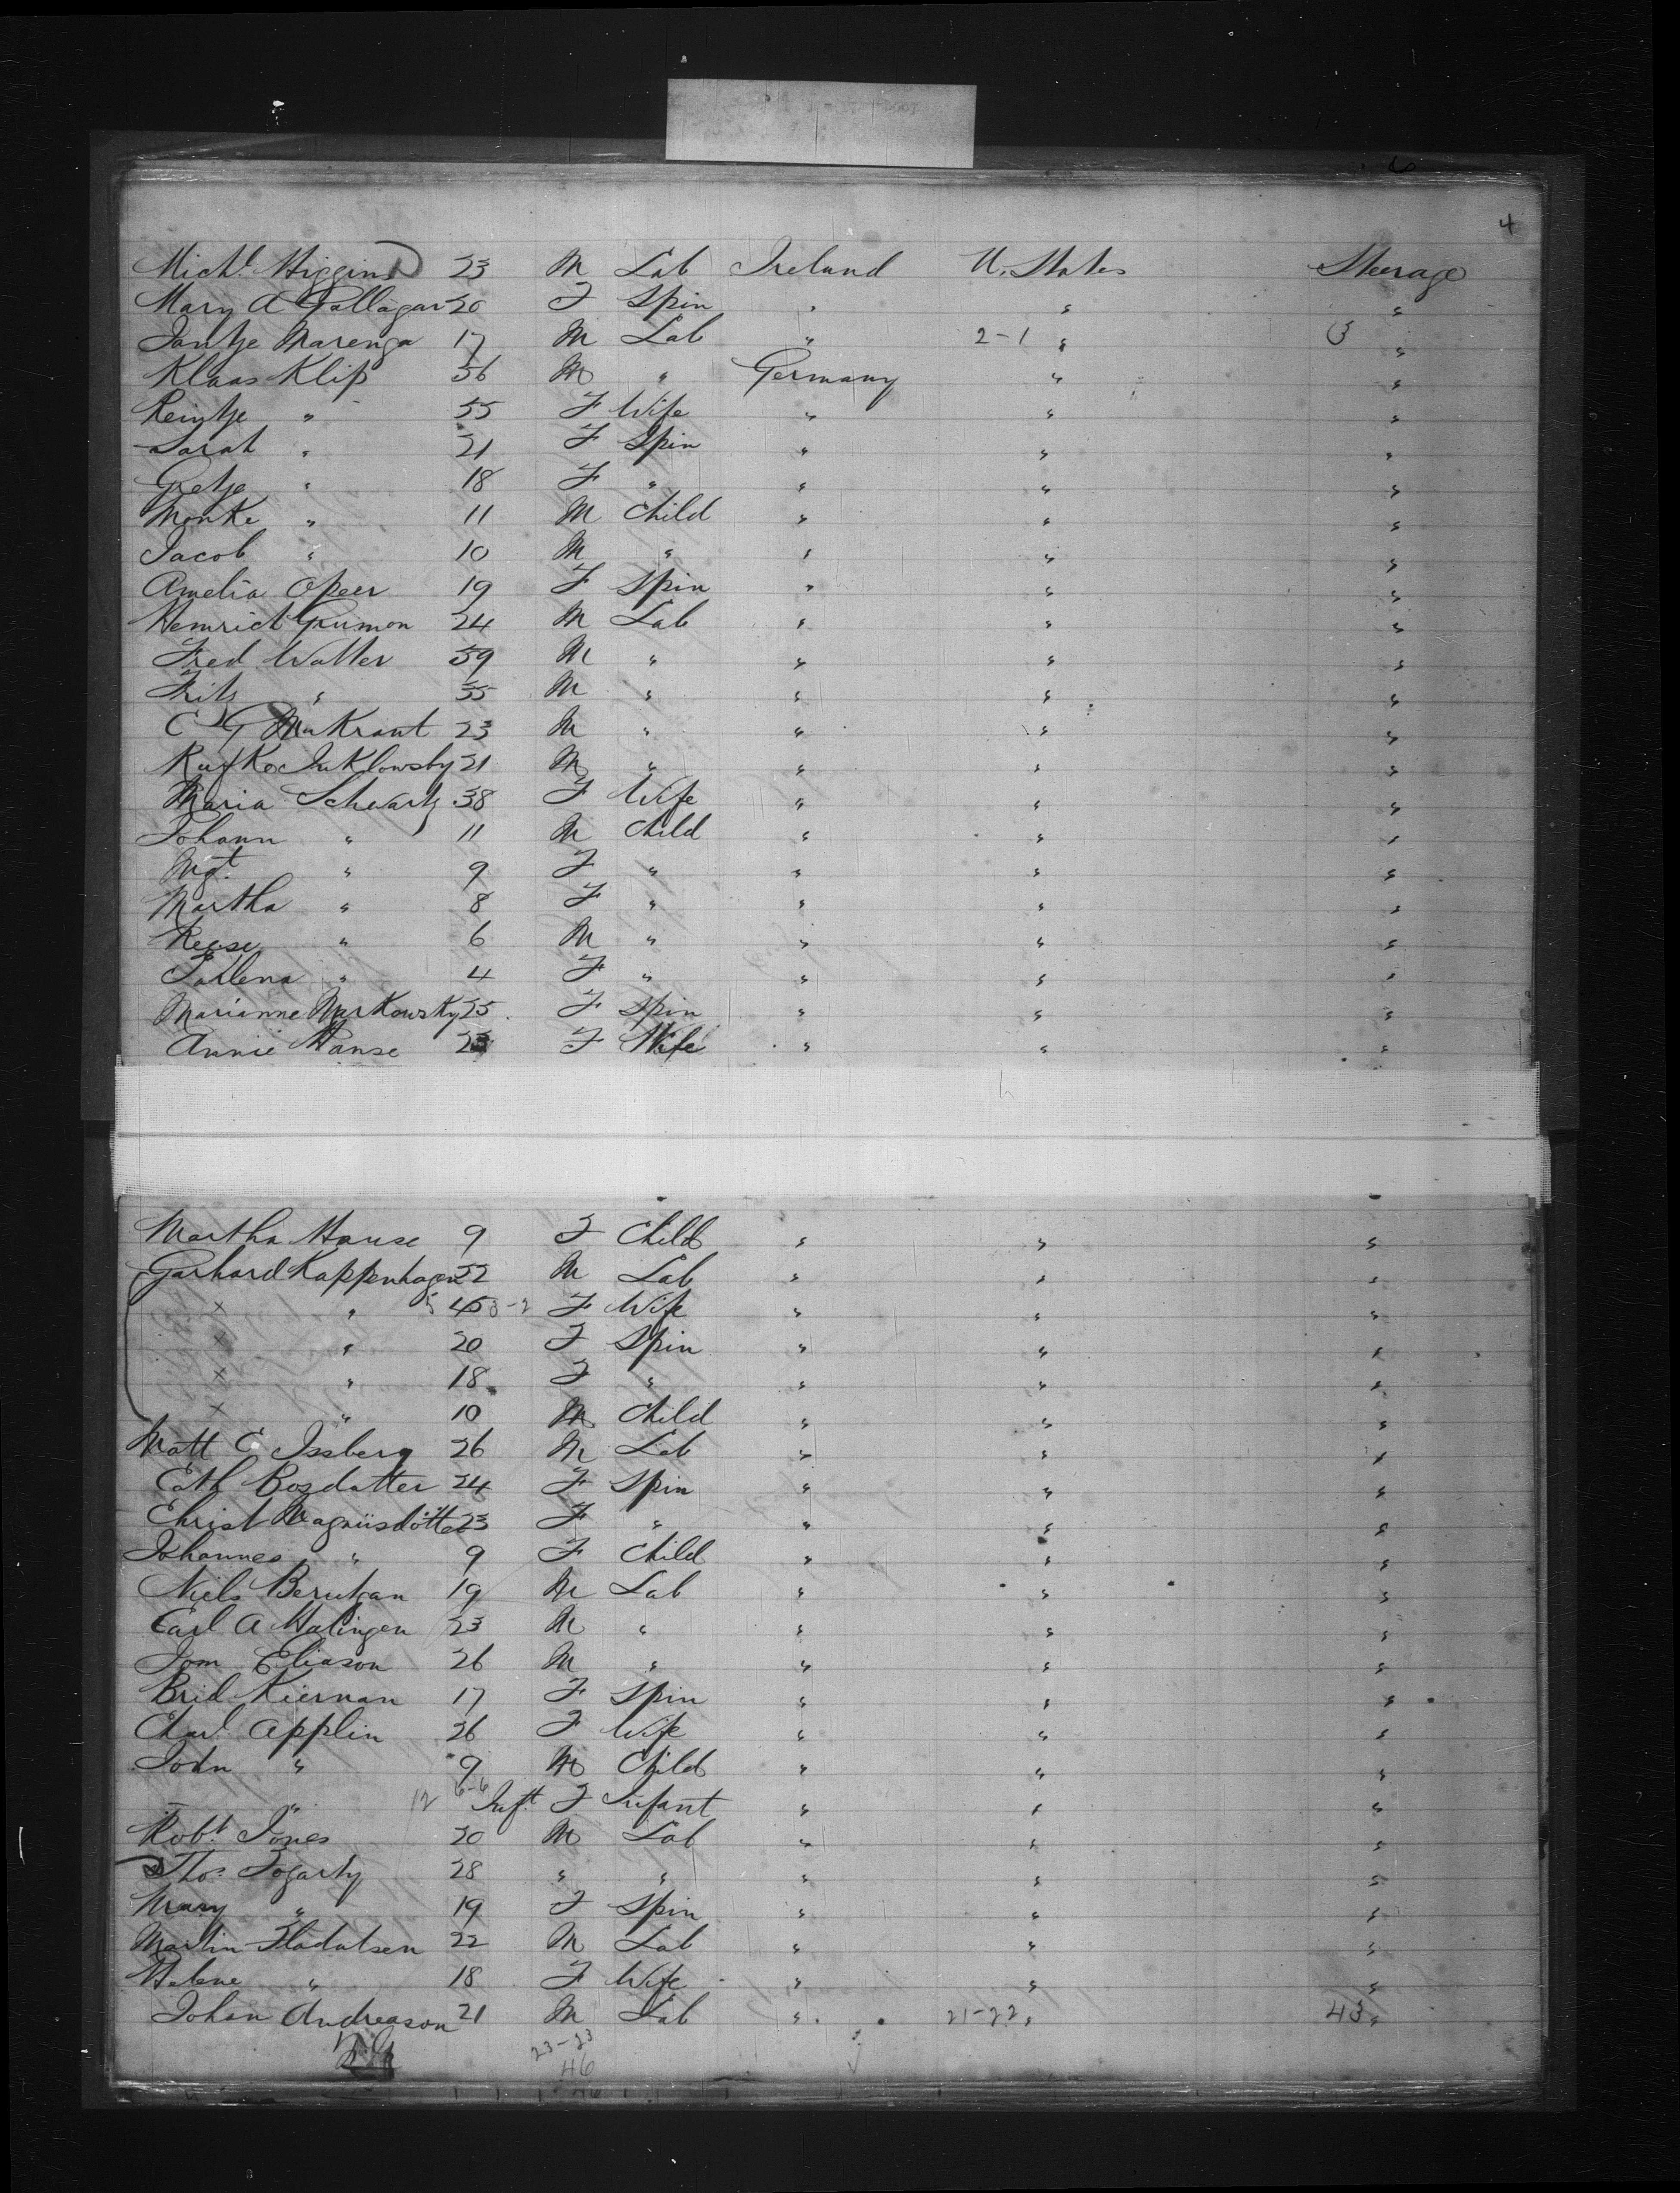 4
Mich.l Higgins 23 M Lab Ireland U. States Steerage
Mary A Gallagar 20 F Spin " " "
Jantje Marenga 17 M Lab " 2-1 " 3 "
Klaas Klip 56 M " Germany " "
Reintje " 55 F Wife " " "
Sarah " 21 F Spin " " "
Gretje " 18 F " " " "
Monke " 11 M Child " " "
Jacob " 10 M " " " "
Amelia Opeer 19 F Spin " " "
Hemrich Grumon 24 M Lab " " "
Fred Walter 59 M " " " "
Fritz " 35 M " " " "
C G MuKrant 23 M " " " "
21 M " " " "
Maria Schwartz 38 F Wife " " "
Johann " 11 M Child " " "
Mgt. " 9 F " " " "
Martha " 8 F " " " "
" 6 M " " " "
" 4 F " " " "
Marianne Markowsky 25 F Spin " " "
Annie Hanse F Wife " " "
Martha Hanse 9 F Child " " "
Garhard Kappenhagen 52 M Lab " " "
x " 45 F Wife " " "
x " 20 F Spin " " "
x " 18 F " " " "
x " 10 M Child " " "
Matt C Issberg 26 M Lab " " "
Cath Bosdatter 24 F Spin " " "
Christ Magnusdotter 23 F " " " "
Johannes " 9 F Child " " "
Niels 19 M Lab " " "
Carl A Halingen 23 M " " " "
Jom Eliason 26 M " " " "
Brid Kiernan 17 F Spin " " "
Char. Applin 26 F Wife " " "
John " 9 M Child " " "
" 12 6-6 Inft F Infant " " "
Robt Jones 20 M Lab " " "
Thos Fogarty 28 " " " " "
Mary " 19 F Spin " " "
Martin Fladatsen 22 M Lab " " "
Helene " 18 F Wife " " "
Johan Andreason 21 M Lab " 21-22 " 43 "
23-23
46